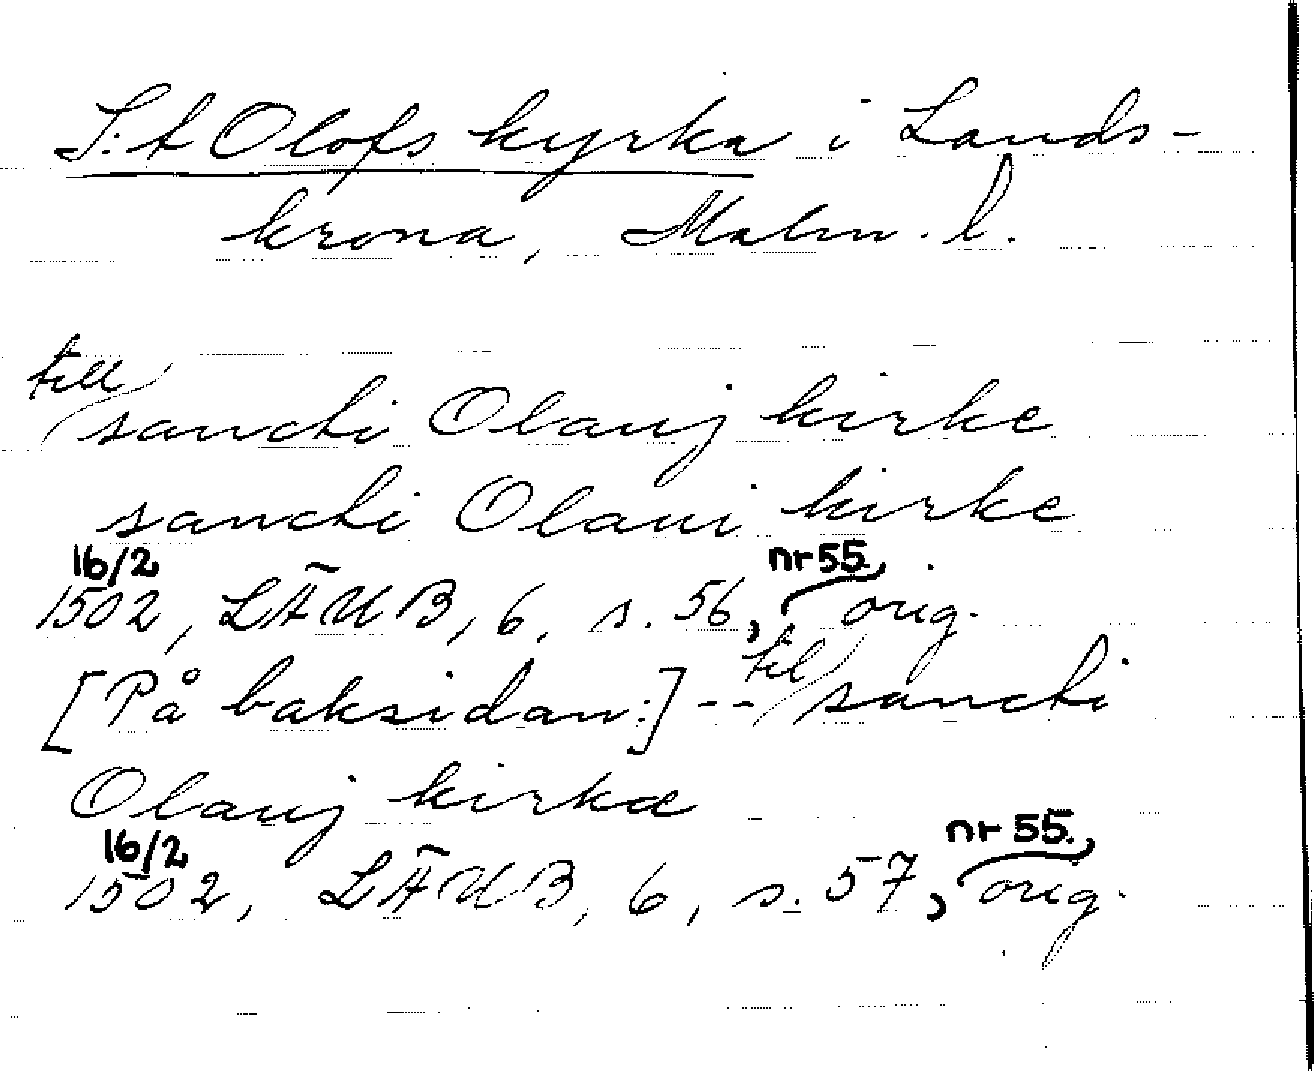 S:t Olofs kyrka i Lands-
krona, Malm. l.
till
sancti Olauj kirke
sancti Olaui kirke
16/2 nr 55,
1502, LÄUB, 6, s. 56, orig.
[På baksidan:] -- til sancti
Olauj kirkæ
16/2 nr 55.,
1502, LÄUB, 6, s. 57, orig.